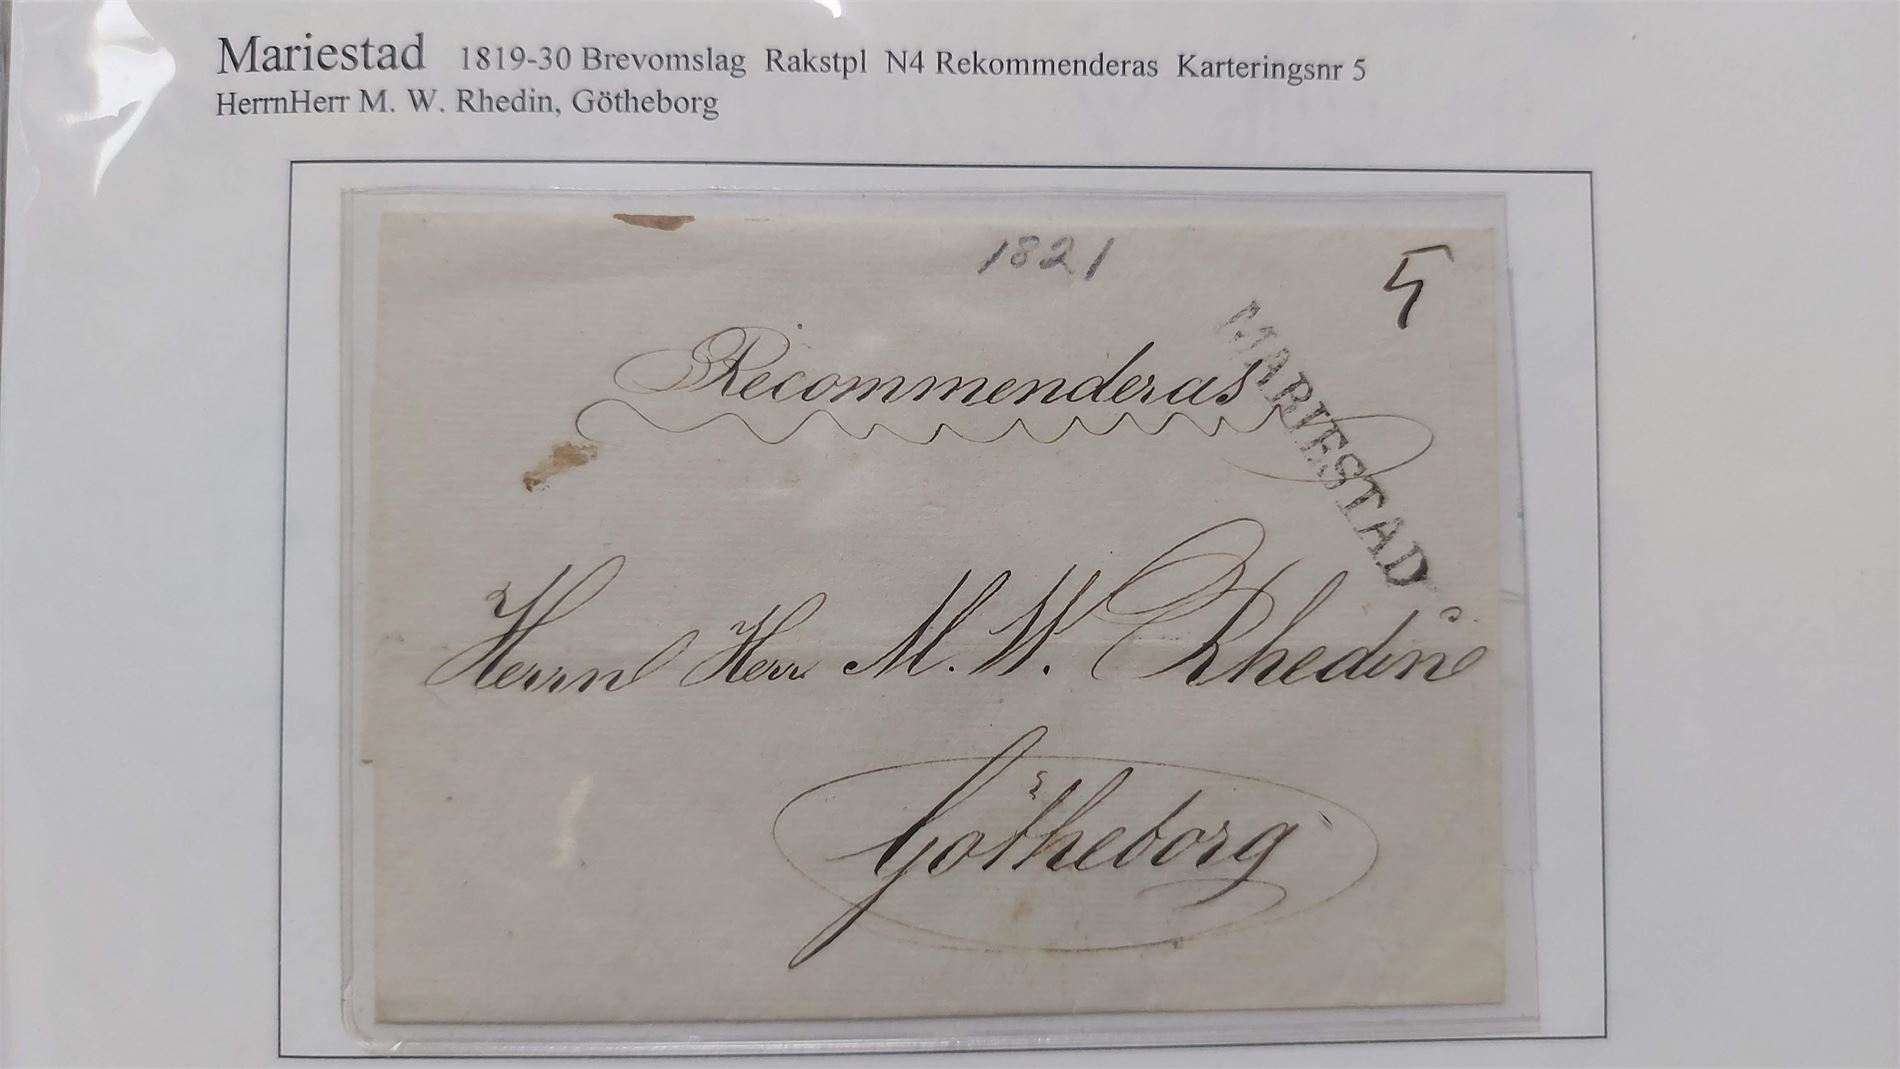 Mariestad 1819-30 Brevomslag Rakstpl N4 Rekommenderas Karteringsnr 5
HerrnHerr M. W. Rhedin, Götheborg
1821
5
Recommenderas
MARIESTAD
Herrn Herr M. W. Rhedin
Götheborg